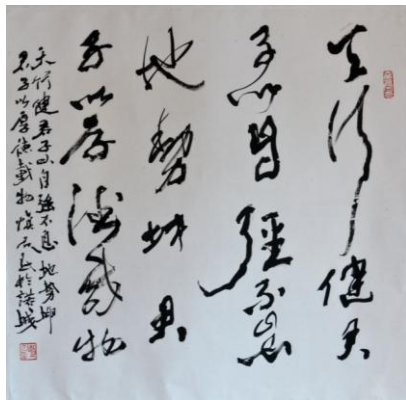 天行健君
子以自强不息
地势坤君
子以厚德载物
天行健君子以自强不息地势坤
君子以厚德载物